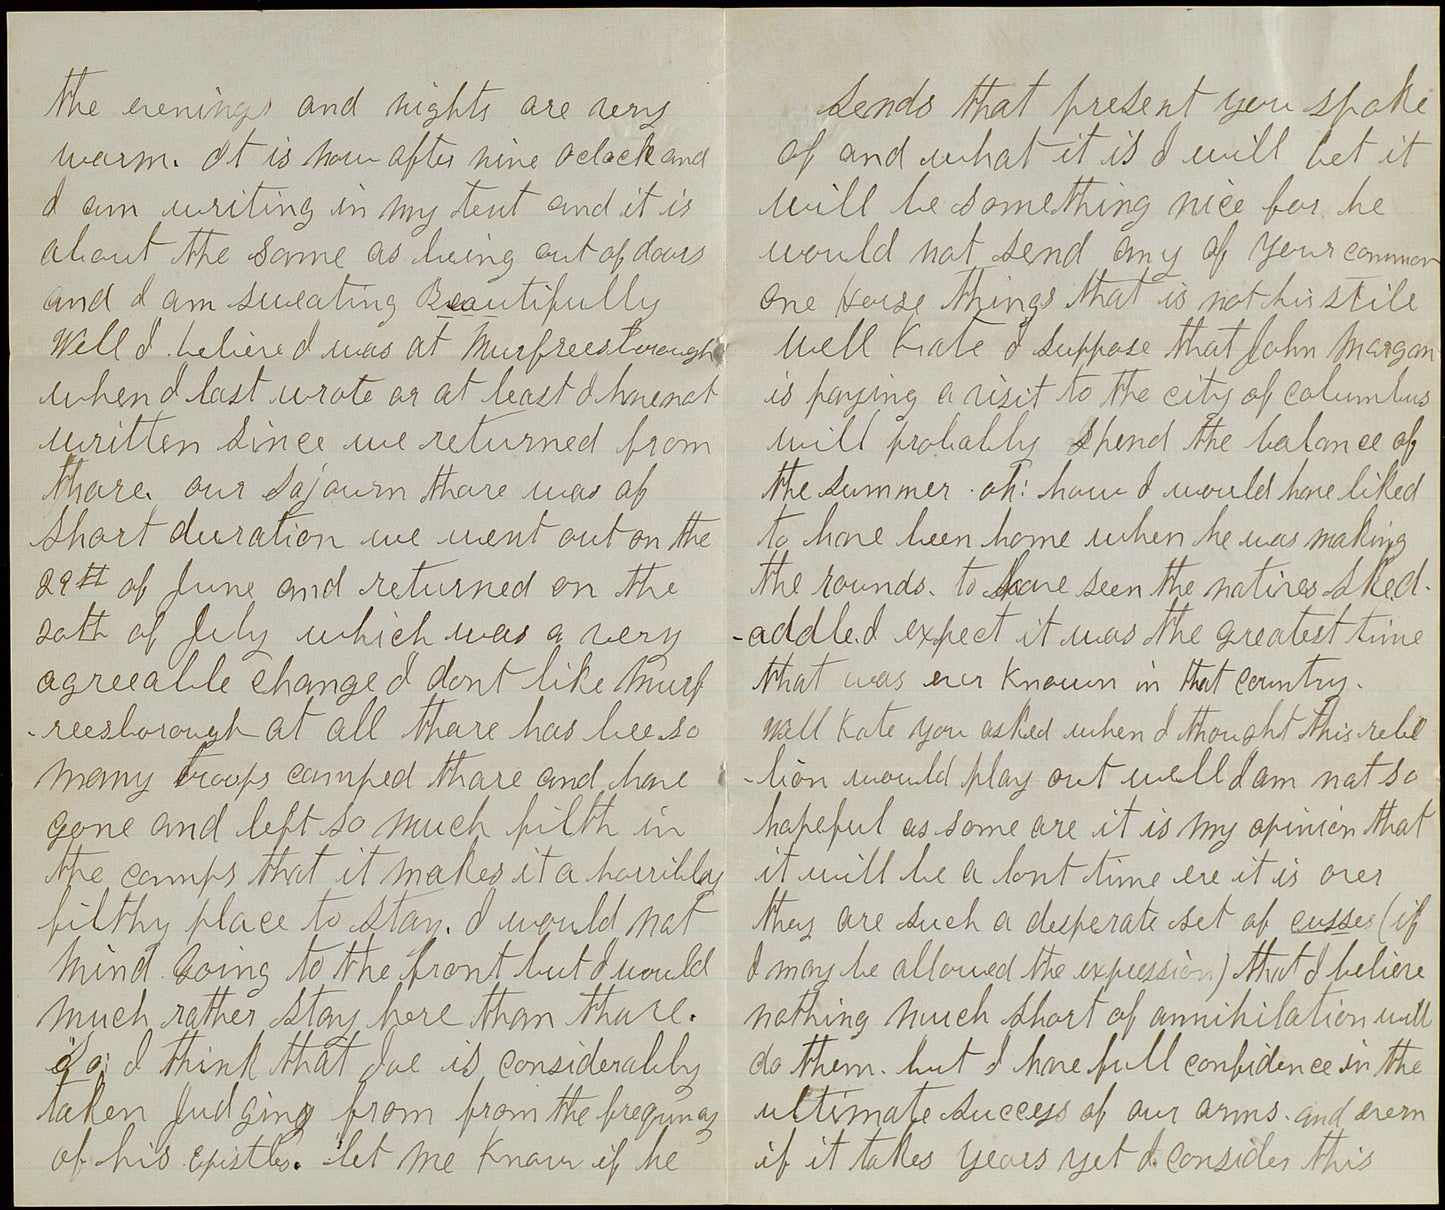 the evenings and nights are very
warm. It is now after nine oclock and
I am writing in my tent and it is
about the same as being out of doors
and I am sweating Beautifully
Well I believe I was at Murfreesborough
when I last wrote or at least I have not
written since we returned from
thare. our sojourn thare was of
short duration we went out on the
29th of June and returned on the
20th of July which was a very
agreeable change I dont like Murf
-reesborough at all thare has bee so
many troops camped thare and have
gone and left so much filth in
the camps that it makes it a horribley
filthy place to stay. I would not
mind going to the front but I would
much rather stay here than thare.
So; I think that Joe is considerably
taken Judging from from the frequncy
of his epistles. let me know if he
sends that present you spoke
of and what it is I will bet it
will be something nice for he
would not send any of your common
one Horse things that is not his stile
well Kate I suppose that John Morgan
is paying a visit to the city of columbus
will probably spend the balance of
the summer. oh! how I would have liked
to have been home when he was making
the rounds. to have seen the natives sked-
-addle. I expect it was the greatest time
that was ever known in that country.
Well Kate you asked when I thought this rebe
-lion would play out well I am not so
hopeful as some are it is my opinion that
it will be a lont time ere it is over
they are such a desperate set of cusses (if
I may be allowed the expression) that I believe
nothing much short of annihilation will
do them. but I have full confidence in the
ultimate success of our arms. and evern
if it takes years yet I consider this